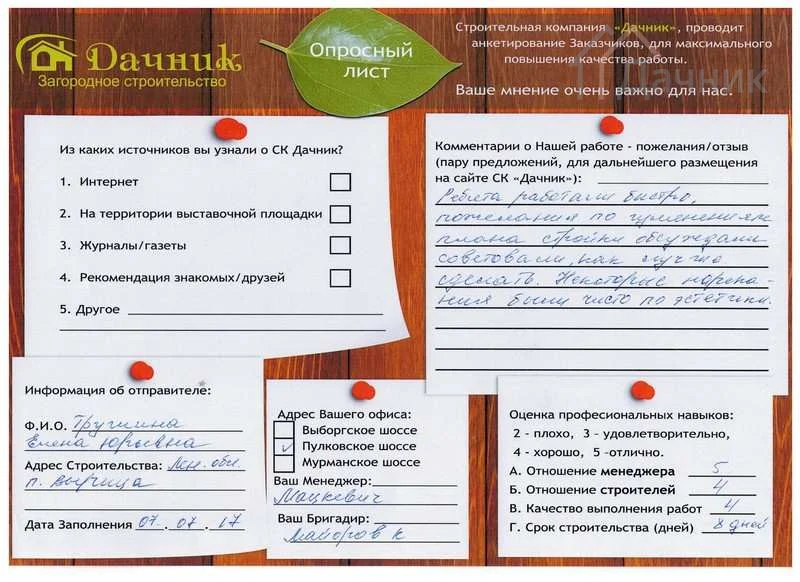 Дачник
Загородное строительство
Опросный
лист
Строительная компания «Дачник», проводит
анкетирование Заказчиков, для максимального
повышения качества работы.
Ваше мнение очень важно для нас.
Дачник
Из каких источников вы узнали о СК Дачник?
1. Интернет
2. На территории выставочной площадки
3. Журналы/газеты
4. Рекомендация знакомых/друзей
5. Другое
Комментарии о Нашей работе - пожелания/отзыв
(пару предложений, для дальнейшего размещения
на сайте СК «Дачник»):
Ребята работали быстро,
пожелания по изменениям
плана стройки обсуждали
советовали, как лучше
сделать. Некоторые нарека-
ния были чисто по эстетики.
Информация об отправителе:
Ф.И.О.
Елена Юрьевна
Адрес Строительства: Лен. обл.
п. Вырица
Дата Заполнения 07.07.17
Адрес Вашего офиса:
Выборгское шоссе
✓ Пулковское шоссе
Мурманское шоссе
Ваш Менеджер:
Мацкевич
Ваш Бригадир:
Майоров К
Оценка професиональных навыков:
2 - плохо, 3 - удовлетворительно,
4 - хорошо, 5 -отлично.
А. Отношение менеджера 5
Б. Отношение строителей 4
В. Качество выполнения работ 4
Г. Срок строительства (дней) 8 дней